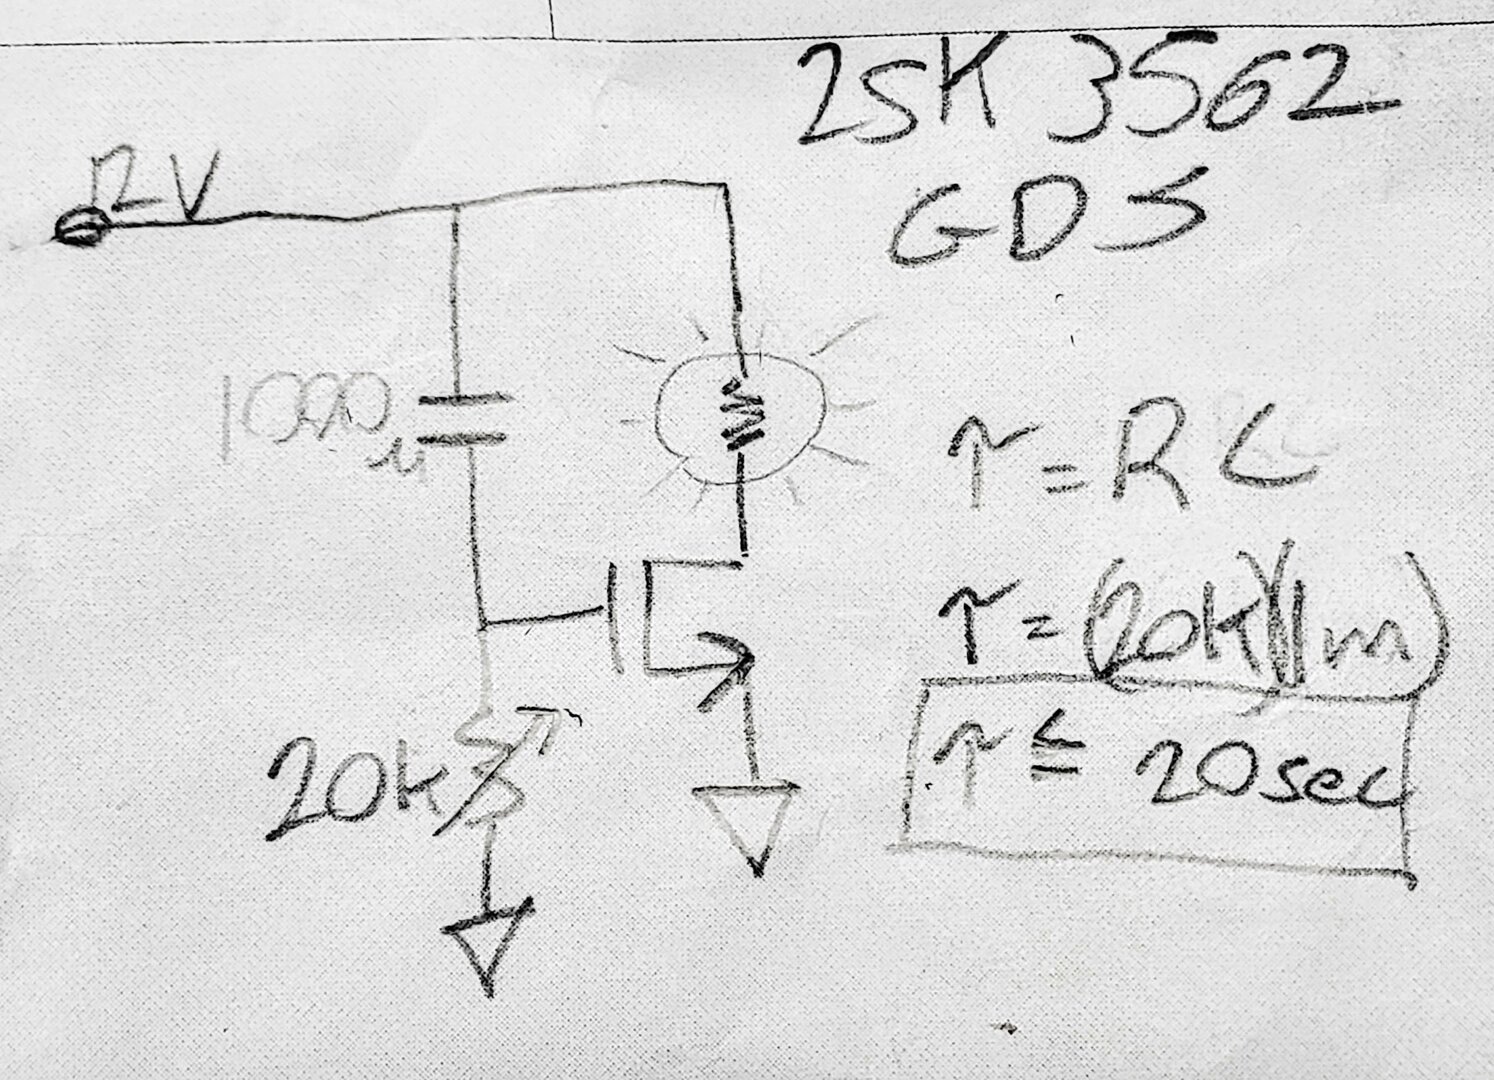 2SK 3562
GDS
12V
1000
µ
τ = RC
τ = (20K)(1m)
20K
τ ≦ 20sec